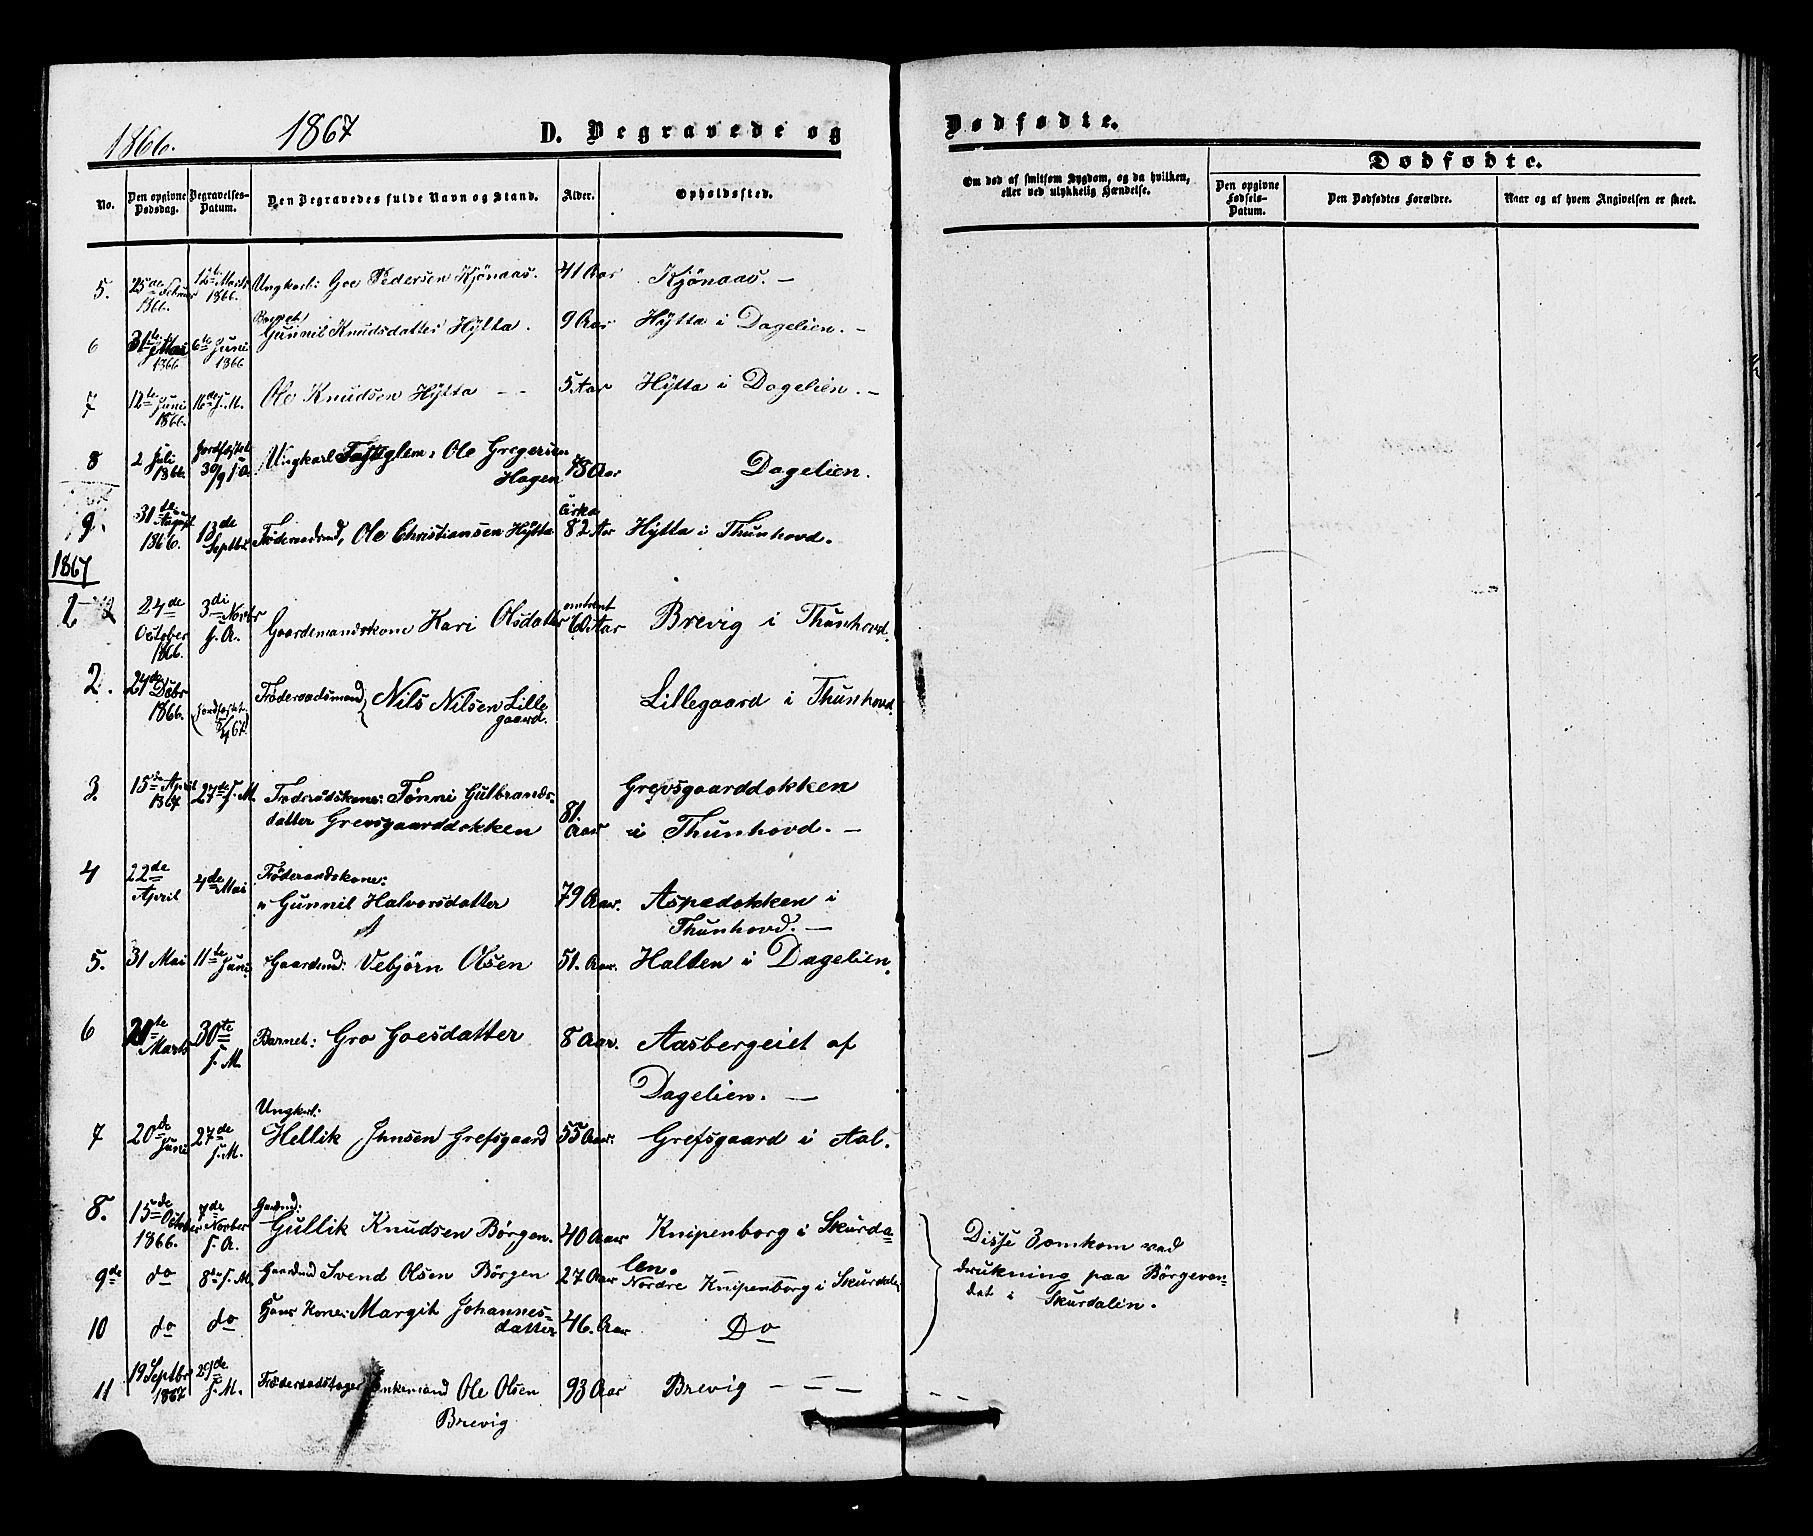 1866.
1867
D. Begravede og
Dødfødte.
No.
Den opgivne Dødsdag.
Begravelses-Datum.
Den Begravedes fulde Navn og Stand.
Alder.
Opholdssted.
Om død af smitsom Sygdom, og da hvilken, eller ved ulykkelig Hændelse.
Dødfødte.
Den opgivne Fødsels-Datum.
Den Dødfødtes Forældre.
Naar og af hvem Angivelsen er skeet.
5. 25de Februar 1866. 12te Marts 1866. Ungkarl: Goe Pedersen Kjönaas. 41 Aar Kjönaas. —
6 31te Mai 1866 6te Juni 1866 Barnet Gunnil Knudsdatter Hÿtta. 9 Aar Hÿtta i Dagelien. —
7 12te Juni 1866. 16de J. M. Ole Knudsen Hÿtta - - 5 Aar Hÿtta i Dagelien. —
8 2 Juli 1866. Jordfæstet 30/9 s. A. Ungkarl Ole Gregersen Hagen Aar Dagelien.
9. 31te August 1866. 13de Septbr Föderaadmd, Ole Christiansen Hÿtta cirka 82 Aar Hÿtta i Thunhovd.
1867
24de October 1866. 3di Novbr s. A. Gaardemandskone Kari Olsdatter omtrent 60 Aar Brevig i Thunhovd.
2. 27de Debr 1866. Jordfæstet 67 Föderaadsmand Nils Nilsen Lille
gaard. Lillegaard i Thunhovd.
3. 15de April 1867 27de s. M. Föderådskone: Tönni Gulbrands-
datter Grevsgaarddokken 81. Aar Grevsgaarddokken
i Thunhovd. —
4 22de April 4de Mai Föderaadskone:
Gunnil Halvorsdatter 79 Aar. Aspedokken i
Thunhovd. —
5. 31 Mai 11te Juni Gaardmd: Vebjörn Olsen 51. Aar. Halten i Dagelien.
6 Marts 30te s. M. Barnet: Gro Goesdatter 8 Aar. Aasbergeiet af
Dagelien. —
7 20de Juni 27de s. M. Ungkarl:
Hellik Jensen Grefsgaard 55 Aar: Grefsgaard i Aal.
8. 15de October 1866. 7de Novber s. A. Gaardmd:
Gullik Knudsen Börgen. 40 Aar Knipenborg i Skurda-
len.
9de do 8de s. M. Gaardmd Svend Olsen Börgen 27 Aar Nordre Knipenborg i Skurdalen
10 do do Hans Kone: Margit Johannes-
datter 46. Aar Do
Disse 3 omkom ved
drukning paa Börgevan-
det i Skurdalen.
11 19 Septbr 1867 29de s. M. Föderaadstager Enkemand Ole Olsen
Brevig 93 Aar Brevig - - -